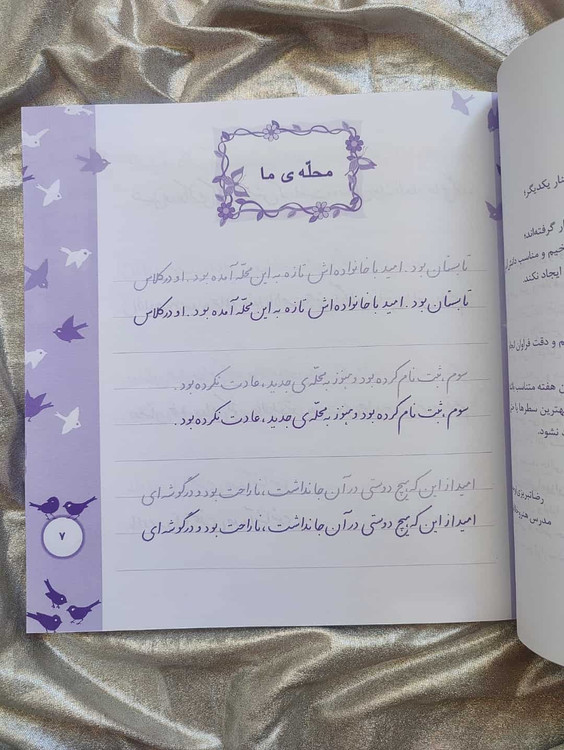 محلّه ی ما
تابستان بود. امید با خانواده اش تازه به این محلّه آمده بود. او در کلاس
تابستان بود. امید با خانواده اش تازه به این محلّه آمده بود. او در کلاس
سوم، ثبت نام کرده بود و هنوز به محلّه ی جدید، عادت نکرده بود.
سوم، ثبت نام کرده بود و هنوز به محلّه ی جدید، عادت نکرده بود.
امید از این که هیچ دوستی در آن جا نداشت، ناراحت بود و در گوشه ای
امید از این که هیچ دوستی در آن جا نداشت، ناراحت بود و در گوشه ای
۷
نار یکدیگر؛
ار گرفته‌اند؛
خیم و مناسب
ایجاد نکند
م و دقت فراوان
ن هفته متناسب
بهترین سطرها
نشود.
مدرس